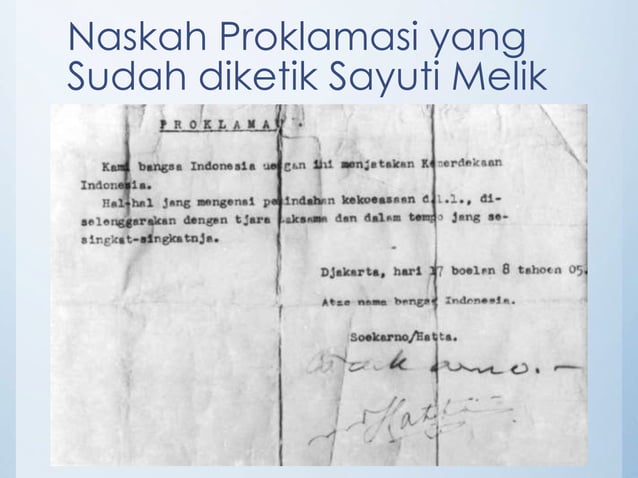 Naskah Proklamasi yang
Sudah diketik Sayuti Melik
P R O K L A M A S I .
Kami bangsa Indonesia dengan ini menjatakan Kemerdekaan
Indonesia.
Hal-hal jang mengenai pemindahan kekoeasaan d.l.l., di-
selenggarakan dengan tjara saksama dan dalam tempo jang se-
singkat-singkatnja.
Djakarta, hari 17 boelan 8 tahoen 05.
Atas nama bangsa Indonesia.
Soekarno/Hatta.
Soekarno.-
Hatta